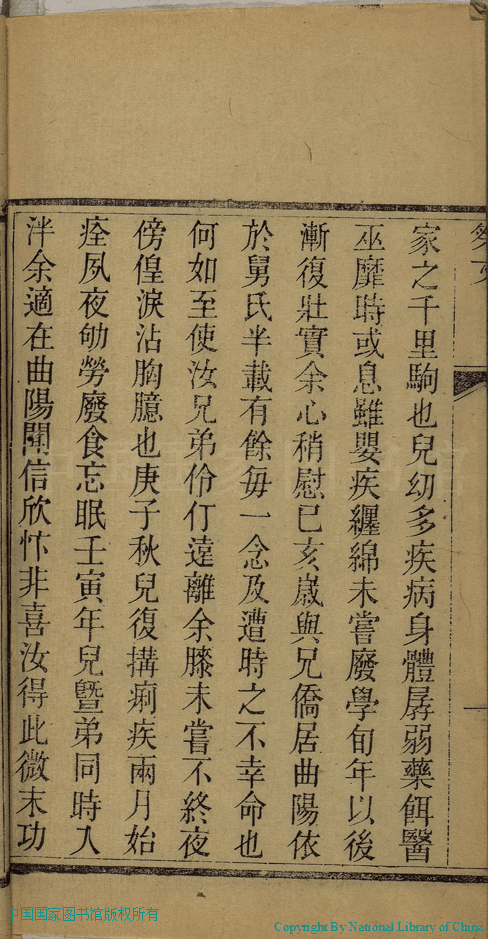 家之千里駒也兒幼多疾病身體孱弱藥餌醫
巫靡時或息雖嬰疾纏綿未嘗廢學旬年以後
漸復壯實余心稍慰已亥歲與兄僑居曲陽依
於舅氏半載有餘每一念及遭時之不幸命也
何如至使汝兄弟伶仃遠離余膝未嘗不終夜
傍偟淚沾胸臆也庚子秋兒復搆痢疾兩月始
痊夙夜劬勞廢食忘眠壬寅年兒曁弟同時入
泮余適在曲陽聞信欣忭非喜汝得此微末功
中国国家图书馆版权所有
Copyright By National Library of China